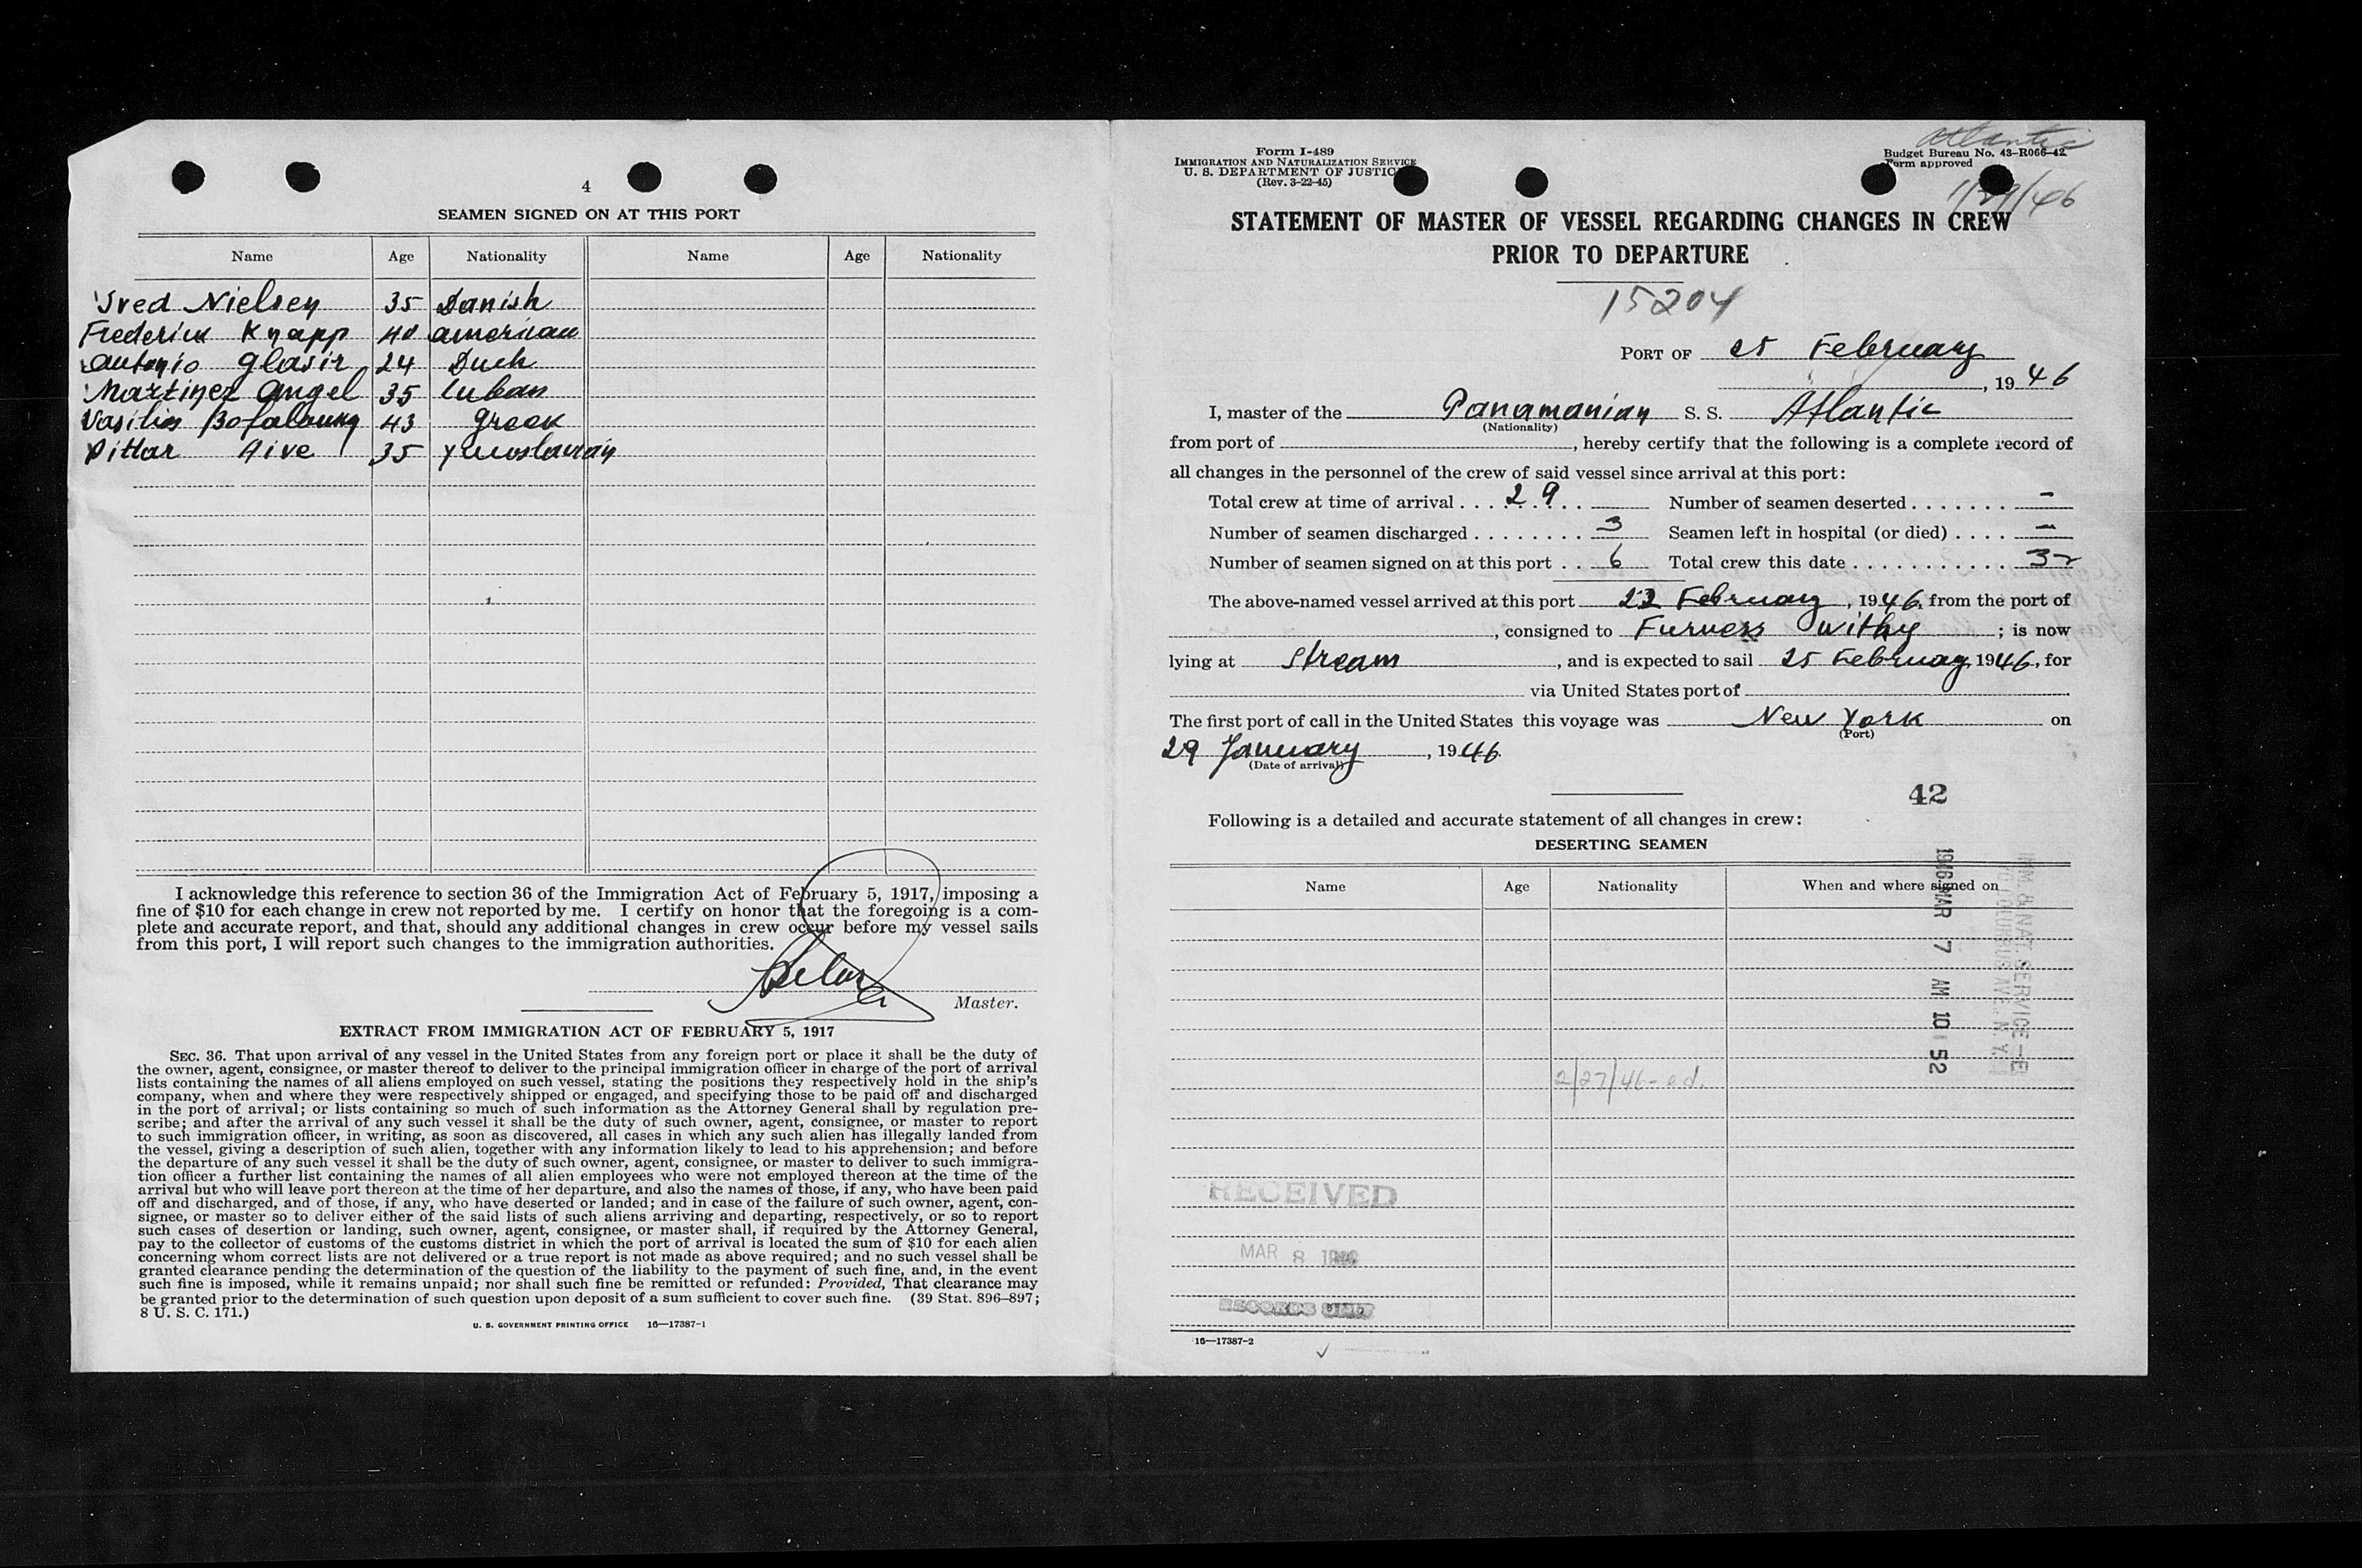 4
SEAMEN SIGNED ON AT THIS PORT
Name Age Nationality Name Age Nationality
Sved Nielsen 35 Danish
Frederick Knapp 40 american
antonio glasir 24 Duch
Martinez angel 35 Cuban
Vasilios 43 greek
Pittar Aive 35 yuoslavian
I acknowledge this reference to section 36 of the Immigration Act of February 5, 1917, imposing a
fine of $10 for each change in crew not reported by me. I certify on honor that the foregoing is a com-
plete and accurate report, and that, should any additional changes in crew occur before my vessel sails
from this port, I will report such changes to the immigration authorities.
Master.
EXTRACT FROM IMMIGRATION ACT OF FEBRUARY 5, 1917
SEC. 36. That upon arrival of any vessel in the United States from any foreign port or place it shall be the duty of
the owner, agent, consignee, or master thereof to deliver to the principal immigration officer in charge of the port of arrival
lists containing the names of all aliens employed on such vessel, stating the positions they respectively hold in the ship's
company, when and where they were respectively shipped or engaged, and specifying those to be paid off and discharged
in the port of arrival; or lists containing so much of such information as the Attorney General shall by regulation pre-
scribe; and after the arrival of any such vessel it shall be the duty of such owner, agent, consignee, or master to report
to such immigration officer, in writing, as soon as discovered, all cases in which any such alien has illegally landed from
the vessel, giving a description of such alien, together with any information likely to lead to his apprehension; and before
the departure of any such vessel it shall be the duty of such owner, agent, consignee, or master to deliver to such immigra-
tion officer a further list containing the names of all alien employees who were not employed thereon at the time of the
arrival but who will leave port thereon at the time of her departure, and also the names of those, if any, who have been paid
off and discharged, and of those, if any, who have deserted or landed; and in case of the failure of such owner, agent, con-
signee, or master so to deliver either of the said lists of such aliens arriving and departing, respectively, or so to report
such cases of desertion or landing, such owner, agent, consignee, or master shall, if required by the Attorney General,
pay to the collector of customs of the customs district in which the port of arrival is located the sum of $10 for each alien
concerning whom correct lists are not delivered or a true report is not made as above required; and no such vessel shall be
granted clearance pending the determination of the question of the liability to the payment of such fine, and, in the event
such fine is imposed, while it remains unpaid; nor shall such fine be remitted or refunded: Provided, That clearance may
be granted prior to the determination of such question upon deposit of a sum sufficient to cover such fine. (39 Stat. 896–897;
8 U. S. C. 171.)
U. S. GOVERNMENT PRINTING OFFICE 16—17387-1
Atlantic
Form I-489
IMMIGRATION AND NATURALIZATION SERVICE
U. S. DEPARTMENT OF JUSTICE
(Rev. 3-22-45)
Budget Bureau No. 43-R066-42
Form approved
1/29/46
STATEMENT OF MASTER OF VESSEL REGARDING CHANGES IN CREW
PRIOR TO DEPARTURE
15204
PORT OF 25 February
, 19 46
I, master of the Panamanian S. S. Atlantic
(Nationality)
from port of , hereby certify that the following is a complete record of
all changes in the personnel of the crew of said vessel since arrival at this port:
Total crew at time of arrival . . . . 29 Number of seamen deserted . . . . . . . –
Number of seamen discharged . . . . . . . . 3 Seamen left in hospital (or died) . . . . –
Number of seamen signed on at this port . . 6 Total crew this date . . . . . . . . . . . 32
The above-named vessel arrived at this port 22 February, 1946, from the port of
, consigned to Furness Withy ; is now
lying at Stream , and is expected to sail 25 February 1946, for
via United States port of
The first port of call in the United States this voyage was New York on
(Port)
29 January , 1946
(Date of arrival)
42
Following is a detailed and accurate statement of all changes in crew:
DESERTING SEAMEN
Name Age Nationality When and where signed on
1946 MAR 7 AM 10 52
IMM. & NAT. SERVICE
COLUMBUS AVE. N. Y.
2/27/46 - ed.
RECEIVED
MAR 8 1946
RECORDS UNIT
16—17387-2